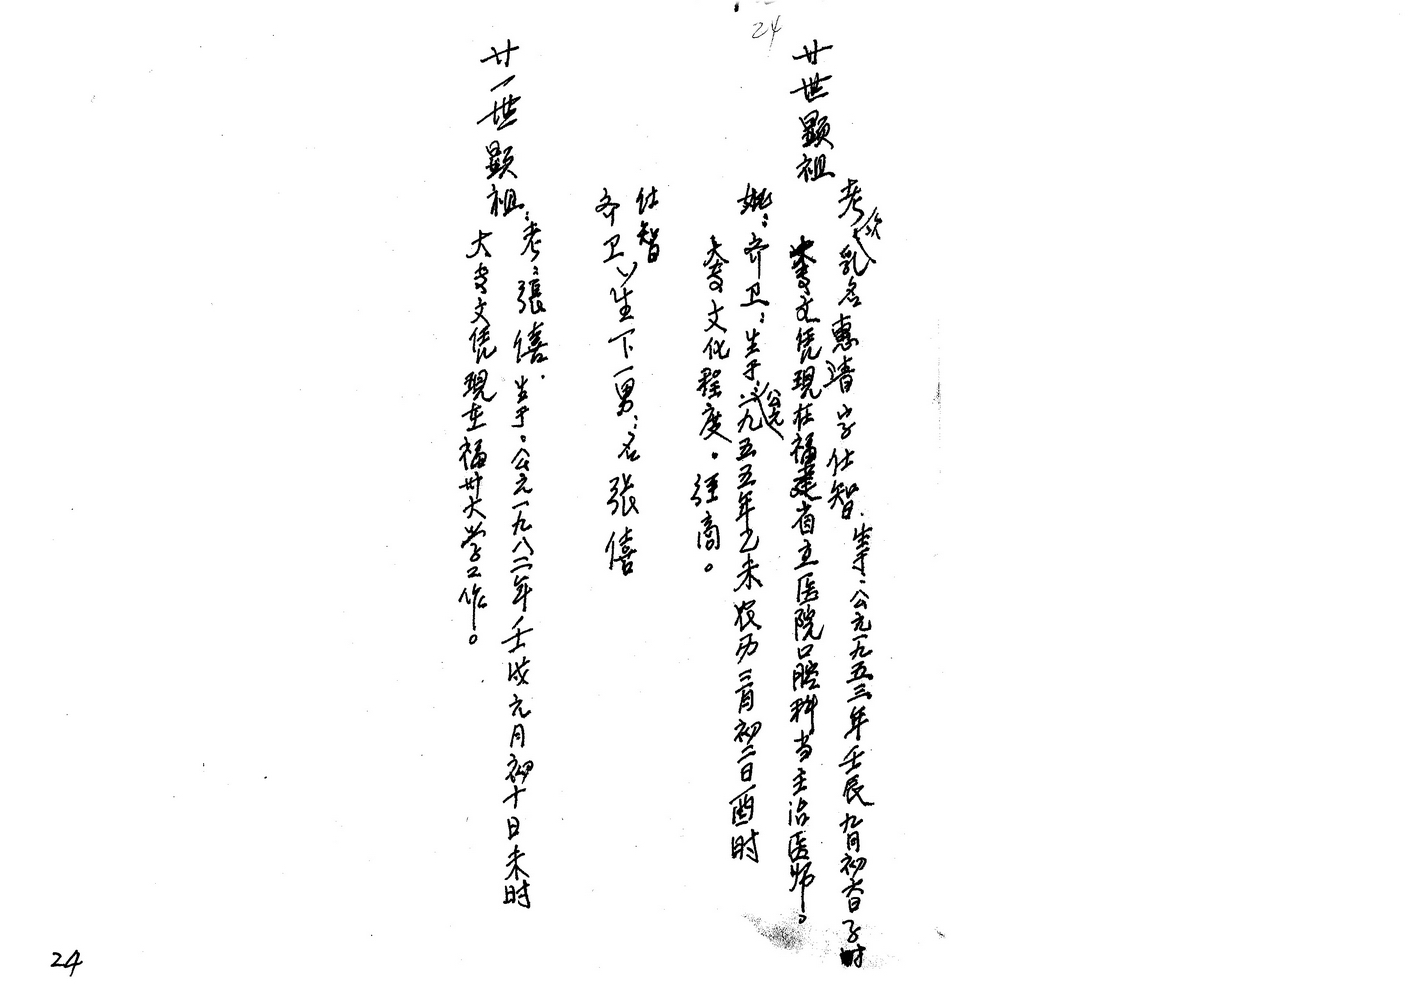 24
廿世顯祖
考欽乳名惠清字仕智.生于:公元一九五三年壬辰九月初六日子时
大专文凭現在福建省立医院口腔科当主治医师。
妣:齐卫:生于:公元一九五五年乙未农历三月初二日酉时
大专文化程度。经商。
仕智
齐卫
生下一男:名張僖
廿一世顯祖:
考:張僖.生于:公元一九八二年壬戌元月初十日未时
大专文凭現在福州大学工作。
24